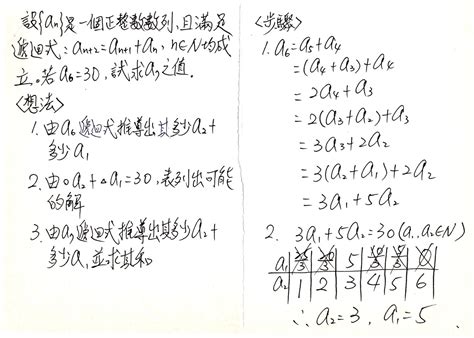 設{aₙ}是一個正整數數列,且滿足
遞迴式:aₙ₊₂=aₙ₊₁+aₙ,n∈N均成
立。若a₆=30,試求a₇之值.
<想法>
1.由a₆遞迴式推導出其多少a₂+
多少a₁
2.由○a₂+△a₁=30,表列出可能
的解
3.由a₇遞迴式推導出其多少a₂+
多少a₁並求其和
<步驟>
1.a₆=a₅+a₄
=(a₄+a₃)+a₄
=2a₄+a₃
=2(a₃+a₂)+a₃
=3a₃+2a₂
=3(a₂+a₁)+2a₂
=3a₁+5a₂
2. 3a₁+5a₂=30(a₁,a₂∈N)
a₁ 25/3 20/3 5 10/3 5/3 0
a₂ 1 2 3 4 5 6
∴a₂=3,a₁=5